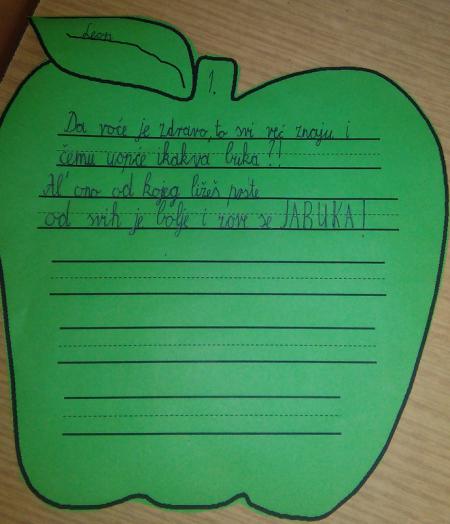 Leon
1.
Da voće je zdravo, to svi već znaju i
čemu uopće ikakva buka?!
Al' ono od kojeg ližeš prste
od svih je bolje i zove se JABUKA!